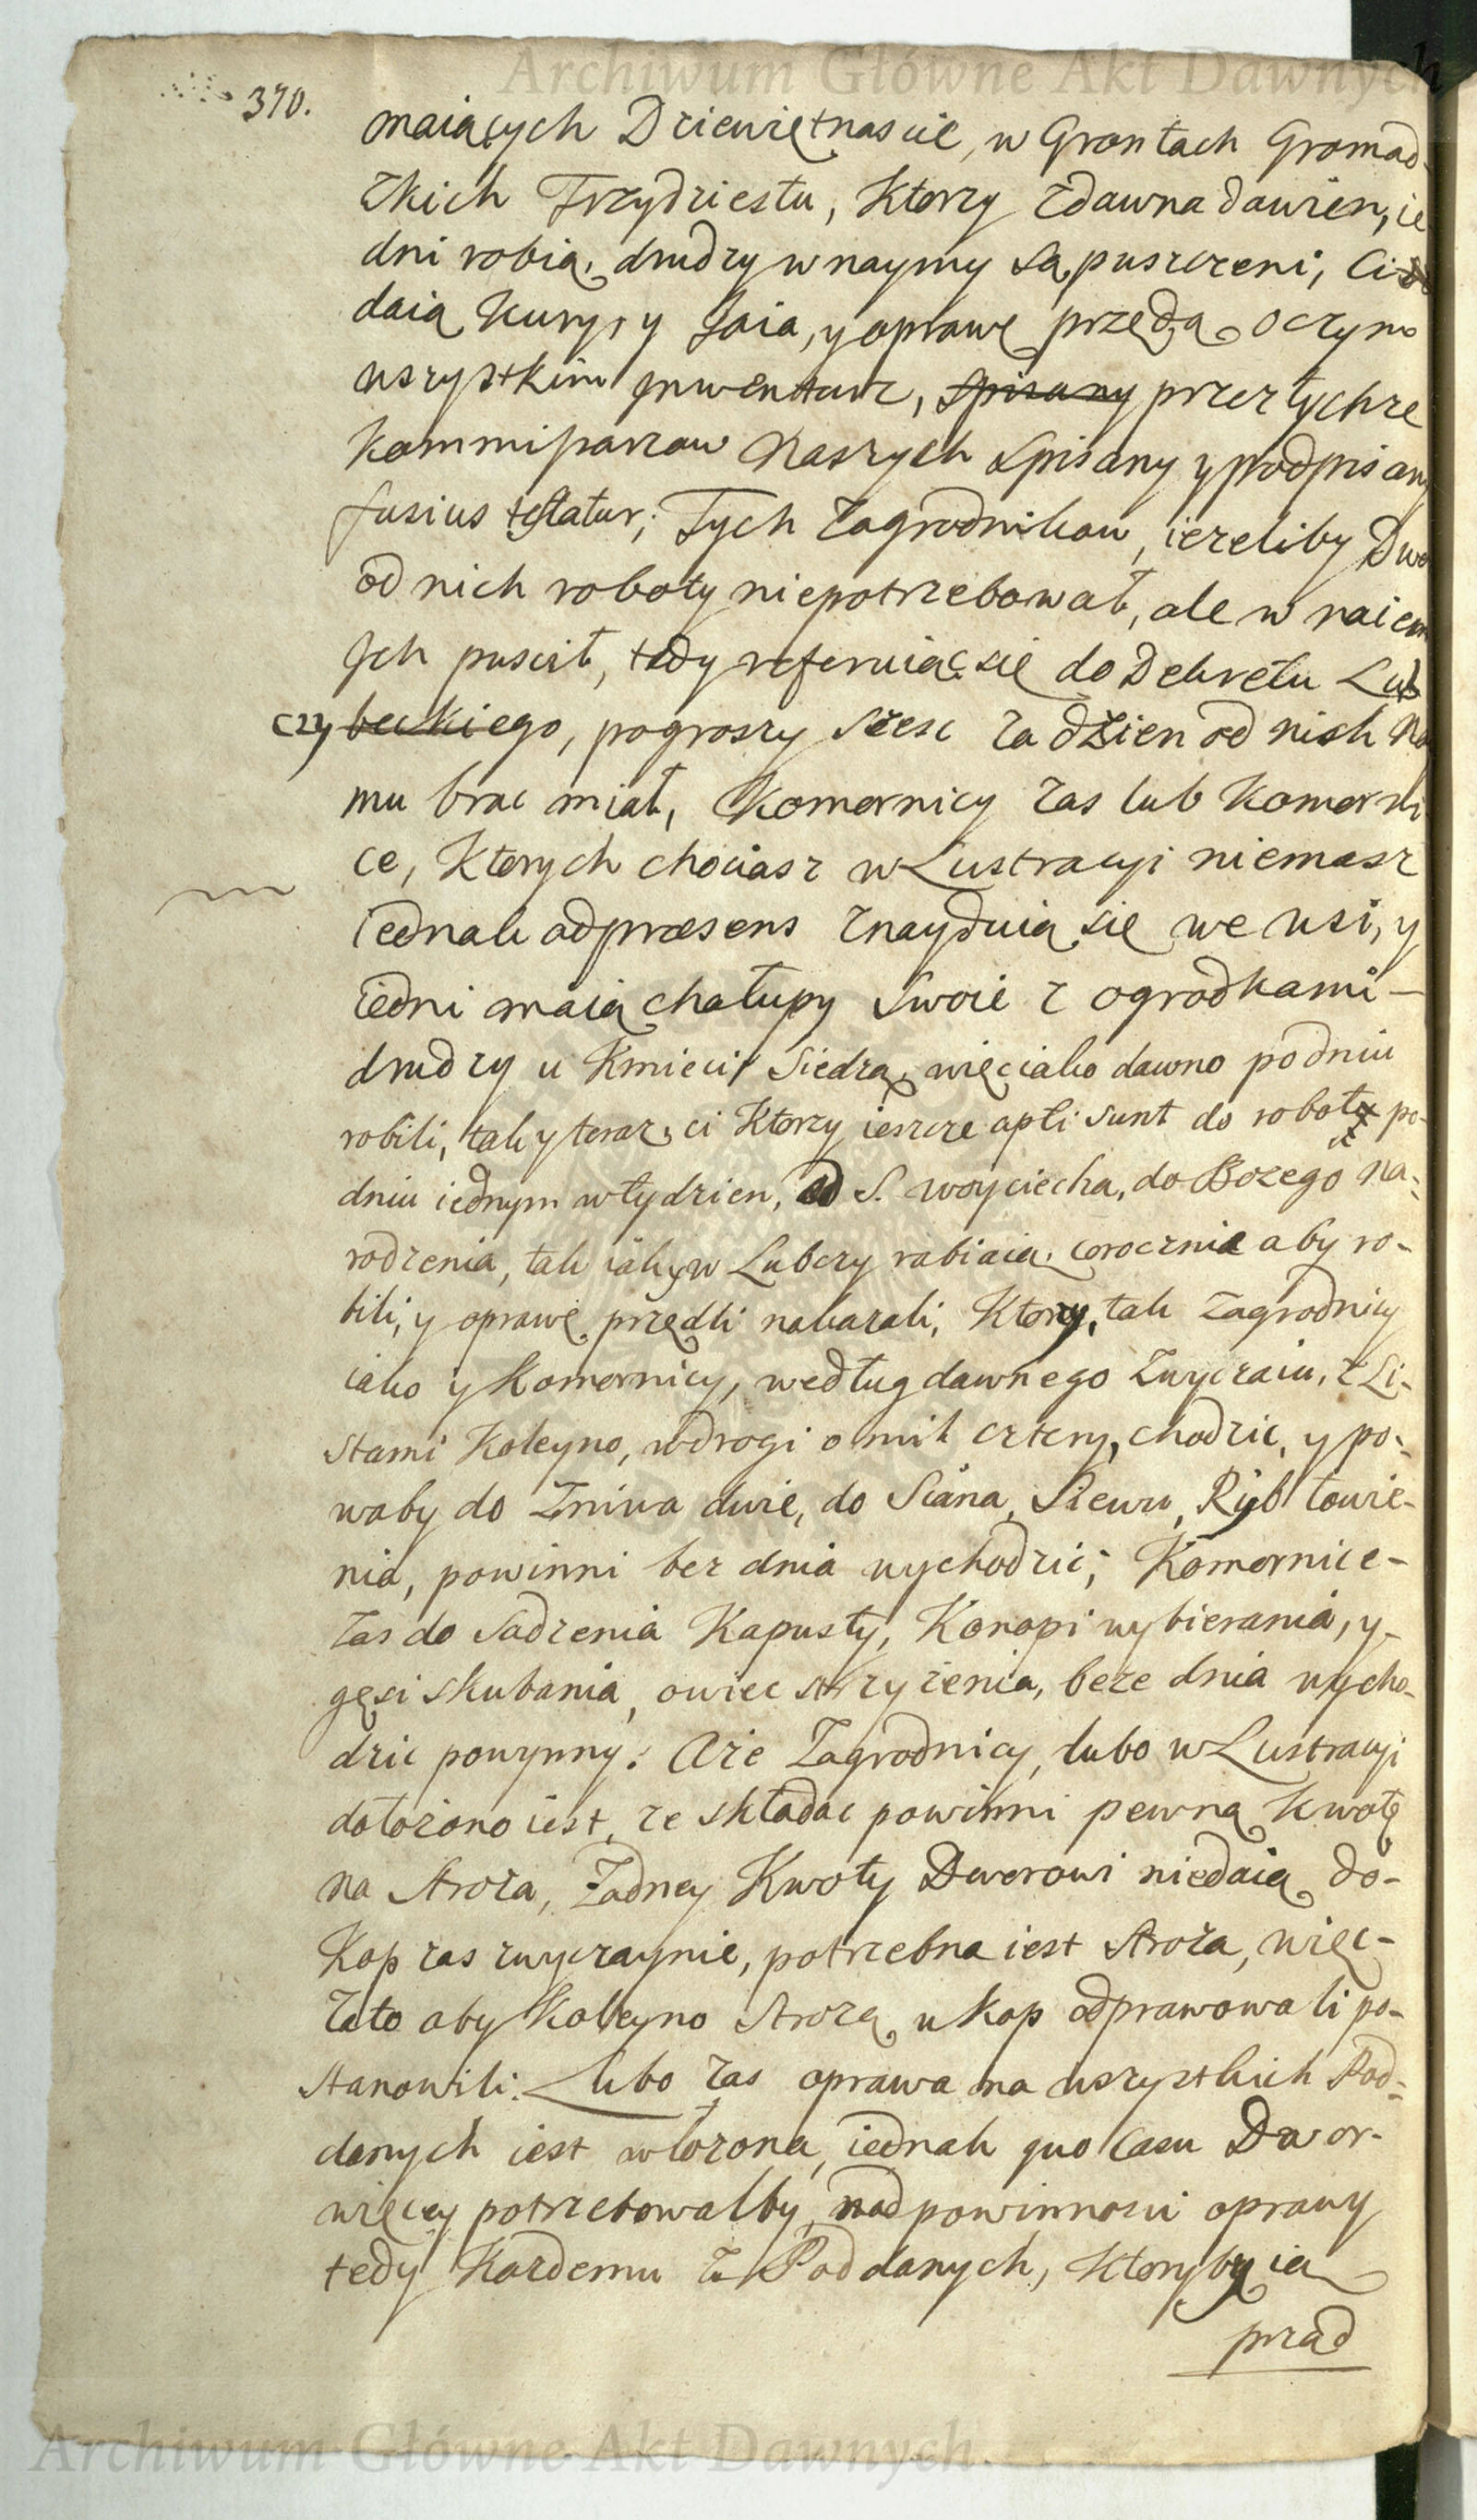 Archiwum Główne Akt Dawnych
390.
maiących Dziewiętnascie, w Grontach Gromad-
zkich Trzydziestu, Ktorzy zdawna dawien, ie
dni robią, drudzy w naymy są puszczeni, Ci
daią Kury, y Jaia, y oprawę przędą o czym
wszystkim Jnwentarz, spisany przez tychze
Kommissarzow Naszych spisany y podpisany
fusius testatur; Tych Zagrodnikow, iezeliby Dwo
od nich roboty niepotrzebował, ale w naiem
Jch puscił, tedy referuiąc się do Dekretu Lub
czy beckiego, pogroszy szesc za dzien od nich Na
mu brac miał, Komornicy zas lub Komorni
ce, Ktorych chociasz w Lustracyi niemasz
iednak adpræsens znayduią się we wsi, y
iedni maią chałupy swoie z ogrodkami –
drudzy u Kmieci siedzą, więc iako dawno po dniu
robili, tak y teraz, ci Ktorzy ieszcze apti sunt do roboty po-
dniu iednym w tydzien, od S. Woyciecha, do Bozego Na-
rodzenia, tak iak y w Lubczy rabiaią, corocznie aby ro-
bili, y oprawę przędli nakazali, Ktorzy, tak Zagrodnicy
iako y Komornicy, według dawnego Zwyczaiu, z Li-
stami Koleyno, w drogi o mil cztery, chodzic, y po-
waby do Zniwa dwie, do Siana, Siewu, Ryb łowie-
nia, powinni bez dnia wychodzic; Komornice-
zas do Sadzenia Kapusty, Konopi wybierania, y-
gęsi skubania, owiec strzyzenia, beze dnia wycho-
dzic powynny: Aze Zagrodnicy, lubo w Lustracyi
dołozono iest, ze składac powinni pewną Kwotę
na stroza, Zadney Kwoty Dworowi niedaią, do-
Kop zas zwyczaynie, potrzebna iest stroza, więc-
zato aby Koleyno strozą u Kop odprawowali po-
stanowili: Lubo zas oprawa na wszystkich Pod-
danych iest włozona, iednak quo casu Dwor-
więcey potrzebowałby, nad powinnosci oprawy
tedy Kazdemu z Poddanych, Ktoryby ią
przad
Archiwum Główne Akt Dawnych